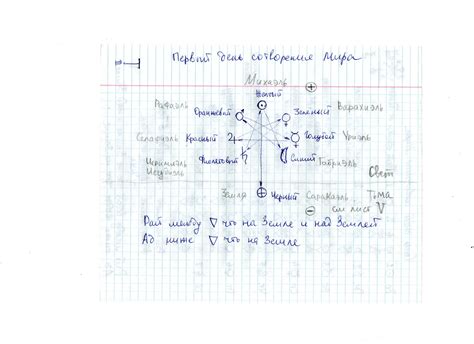 Первый день сотворения Мира
Михаэль
Жёлтый
Рафаэль Оранжевый Зеленый Варахиэль
Селафиэль Красный Голубой Уриэль
Иеремиэль Фиолетовый Синий Гавриэль
Иегудиэль Свет
Земля Чёрный Саракаэль Тьма
см лист V
Рай между ▽ что на Земле и над Землей
Ад ниже ▽ что на Земле